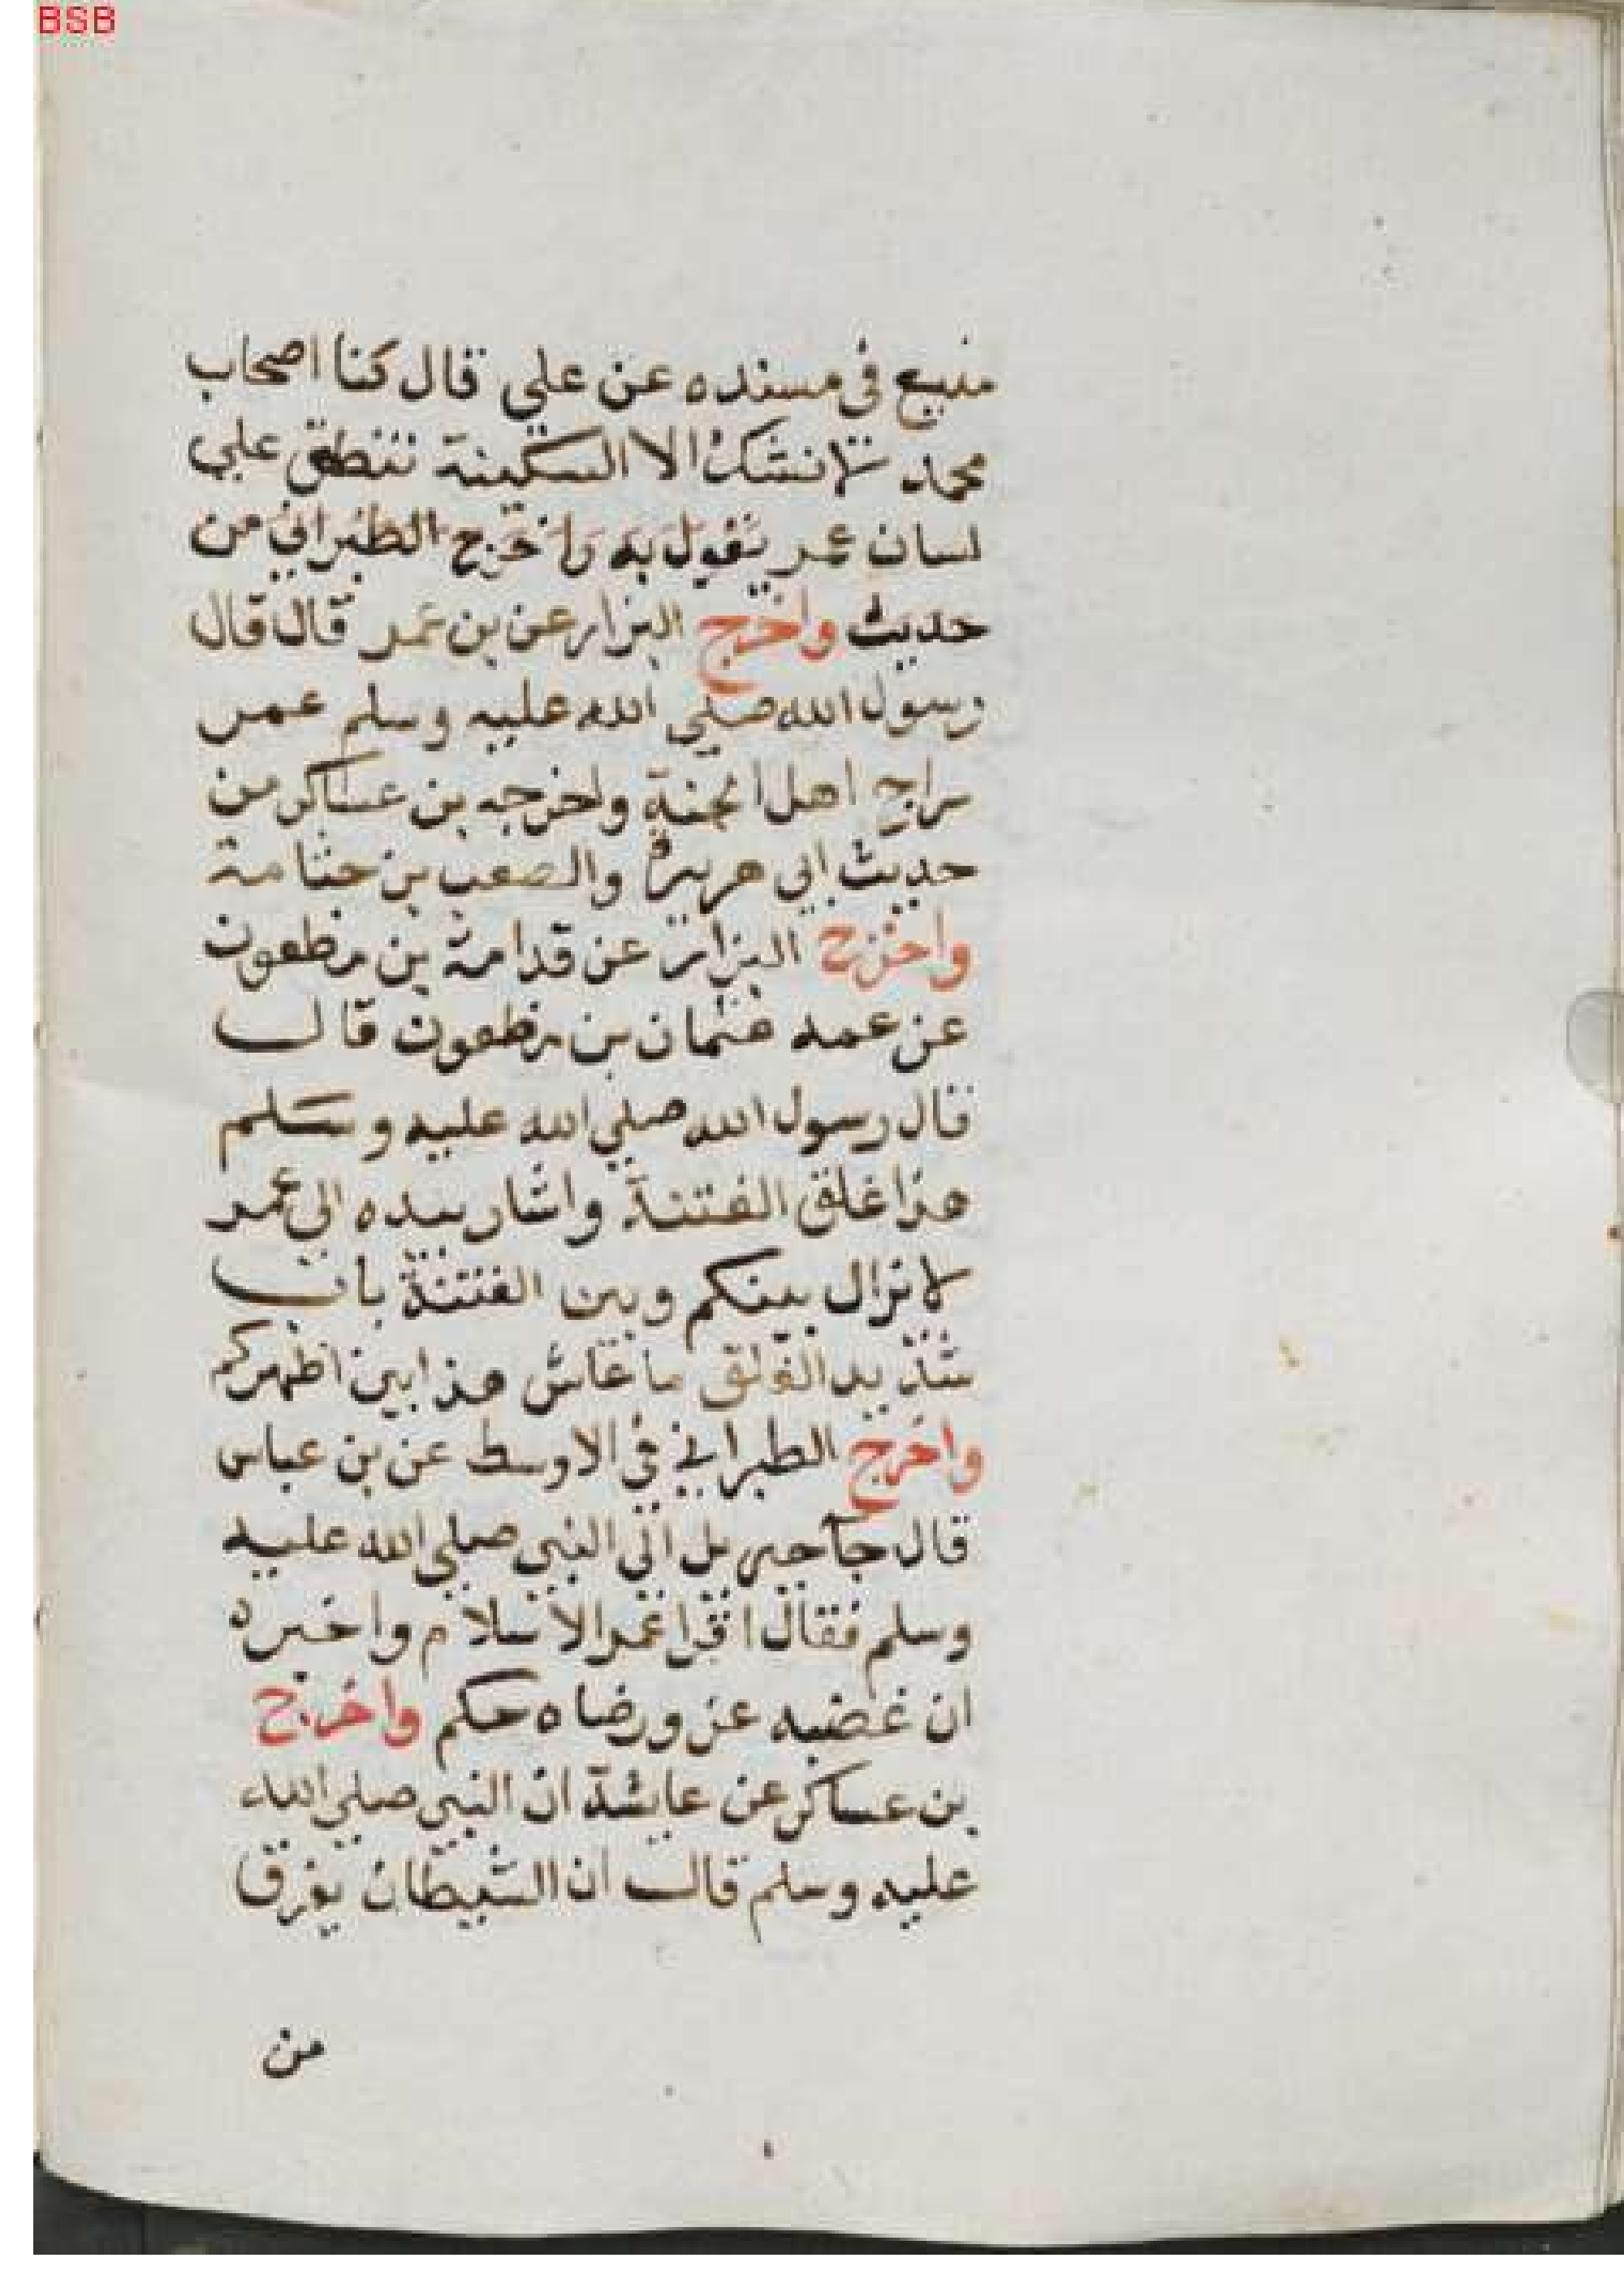 BSB
منيع في مسنده عن علي قال كنا اصحاب
محمد لا نشك الا السكينة تنطق علي
لسان عمر يقول به واخرج الطبراني من
حديث واخرج البزار عن بن عمر قال قال
رسول الله صلي الله عليه وسلم عمر
سراج اهل الجنة واخرجه بن عساكر من
حديث ابي هريرة والصعب بن جثامة
واخرج البزار عن قدامة بن مظعون
عن عمه عثمان بن مظعون قال
قال رسول الله صلي الله عليه وسلم
هذا غلق الفتنة واشار بيده الي عمر
لا تزال بينكم وبين الفتنة باب
شديد الغلق ما عاش هذا بين اظهركم
واخرج الطبراني في الاوسط عن بن عباس
قال جآ جبريل الي النبي صلي الله عليه
وسلم فقال اقرا عمر الاسلام واخبره
ان غضبه عز ورضاه حكم واخرج
بن عساكر عن عايشة ان النبي صلي الله
عليه وسلم قال ان الشيطان يفرق
من